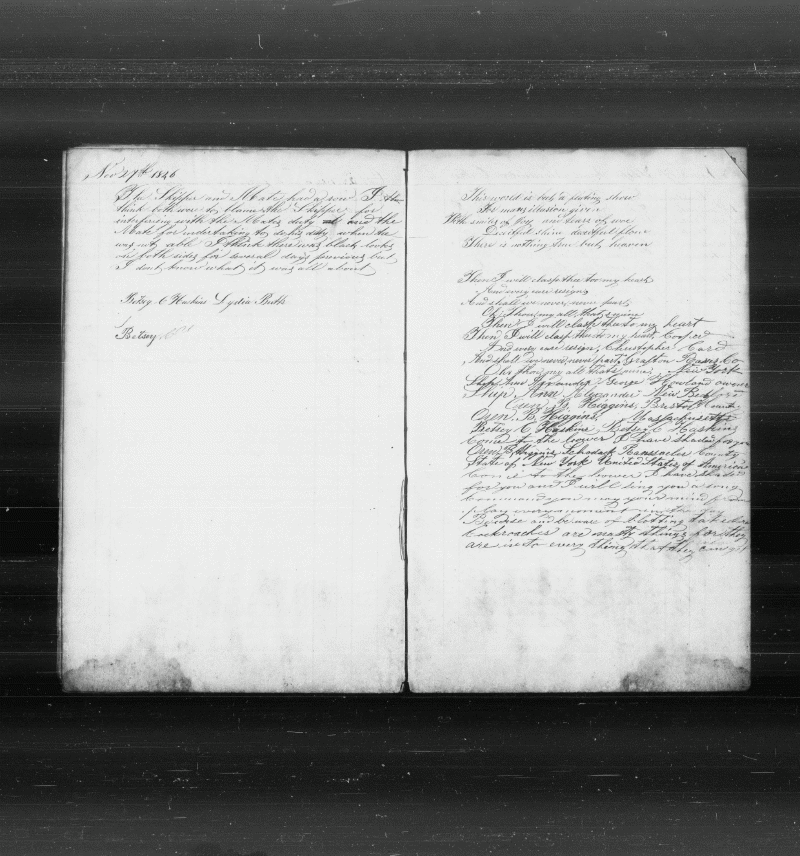 Nov 27th 1846
The Skipper and Mate had a row. I th
think both were to blame the Skipper for
interfering with the Mates duty at and the
Mate for undertaking to do his duty when he
was not able I think there was black looks
on both sides for several days previous but
I dont know what it was all about
Betsey C Haskins Lydia Beth
Betsey
This world is but a fleeting show
For mans illusion given
The smiles of Joy the tears of woe
Deceitful shine deceitful flow
There is nothing true but heaven
Then I will clasp thee too my heart
And every care resign
And shall we never, never part
Oh thou my all thats mine
Then I will clasp the to my heart
Then I will clasp thee to my heart, Cooper
And every care resign, Christopher Card
And shall we never, never part, Grafton Rens Co
Oh thou my all thats mine, New York
Ship Ann Alexander George Howland owner
Ship Ann Alexander New Bedford
Owen B Higgins, Bristol County
Owen, B, Higgins, Massachusetts
Betsey C Haskins, Betsey C Haskins
Come to the bower I have shaded for you
Owen B, Higgins, Schodack Ranssaeler County
State of New York United States of America
Come to the bower I have shaded
for you and I will bring you
command you may your mind
play every moment in the day
Be wise and beware of blotting take care
Cockroaches are nasty things for they
are in to every thing that they can get